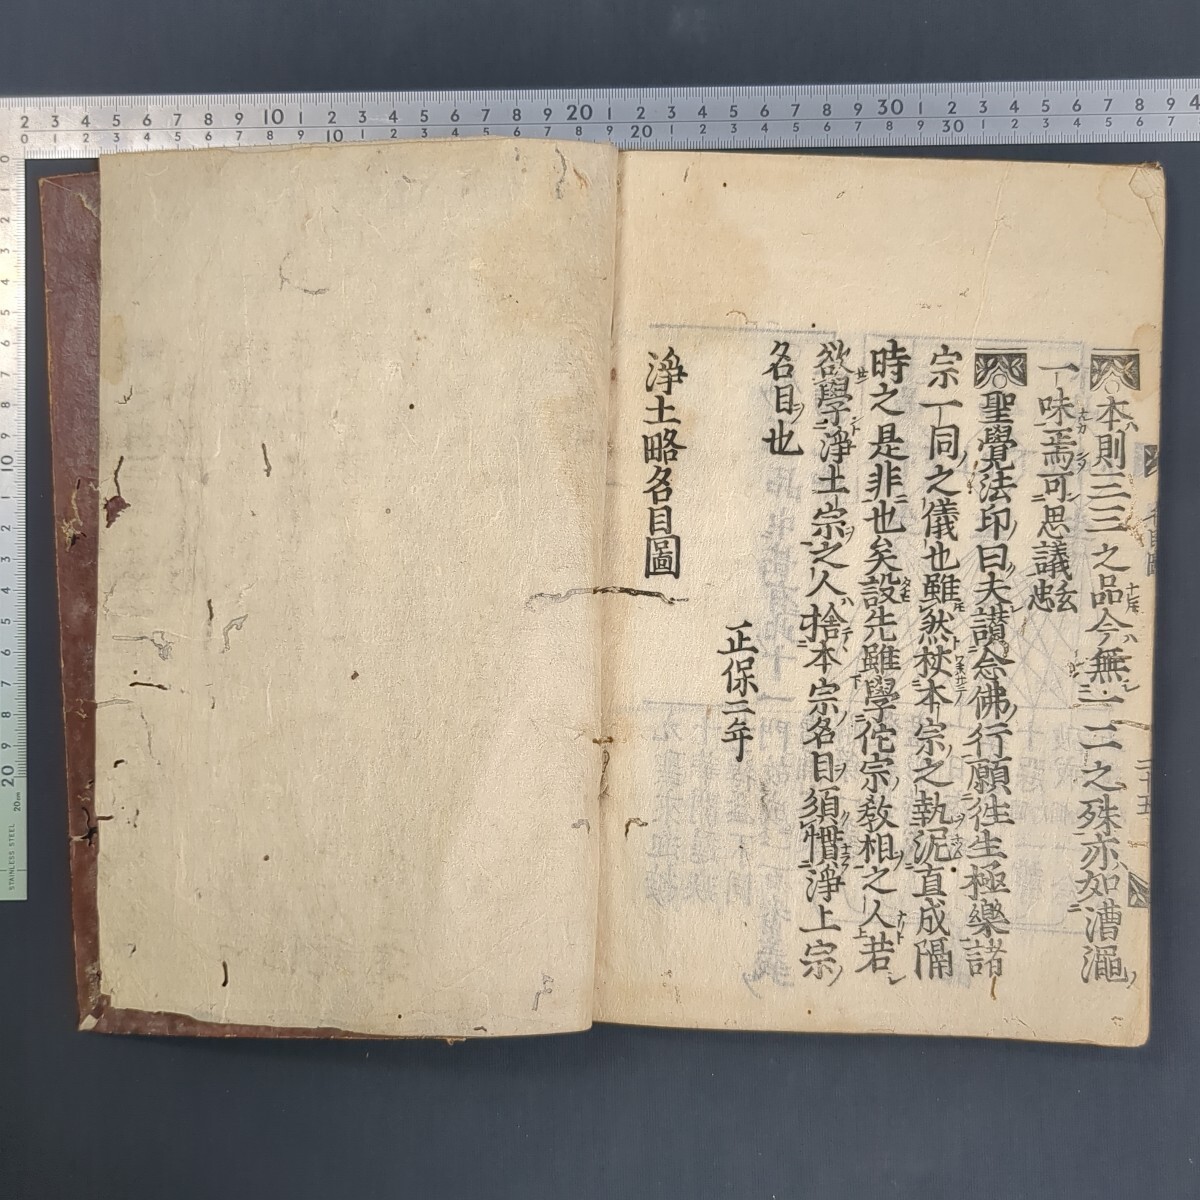 本則三三之品今無一二之殊亦如漕澠
一味焉可思議
聖覺法印曰夫讃念佛行願徃生極樂諸
宗一同之儀也雖然杖本宗之執泥直成隔
時之是非也矣設先雖學佗宗教相之人若
欲學淨土宗之人捨本宗名目須慣淨土宗
名目也
正保二年
淨土略名目圖